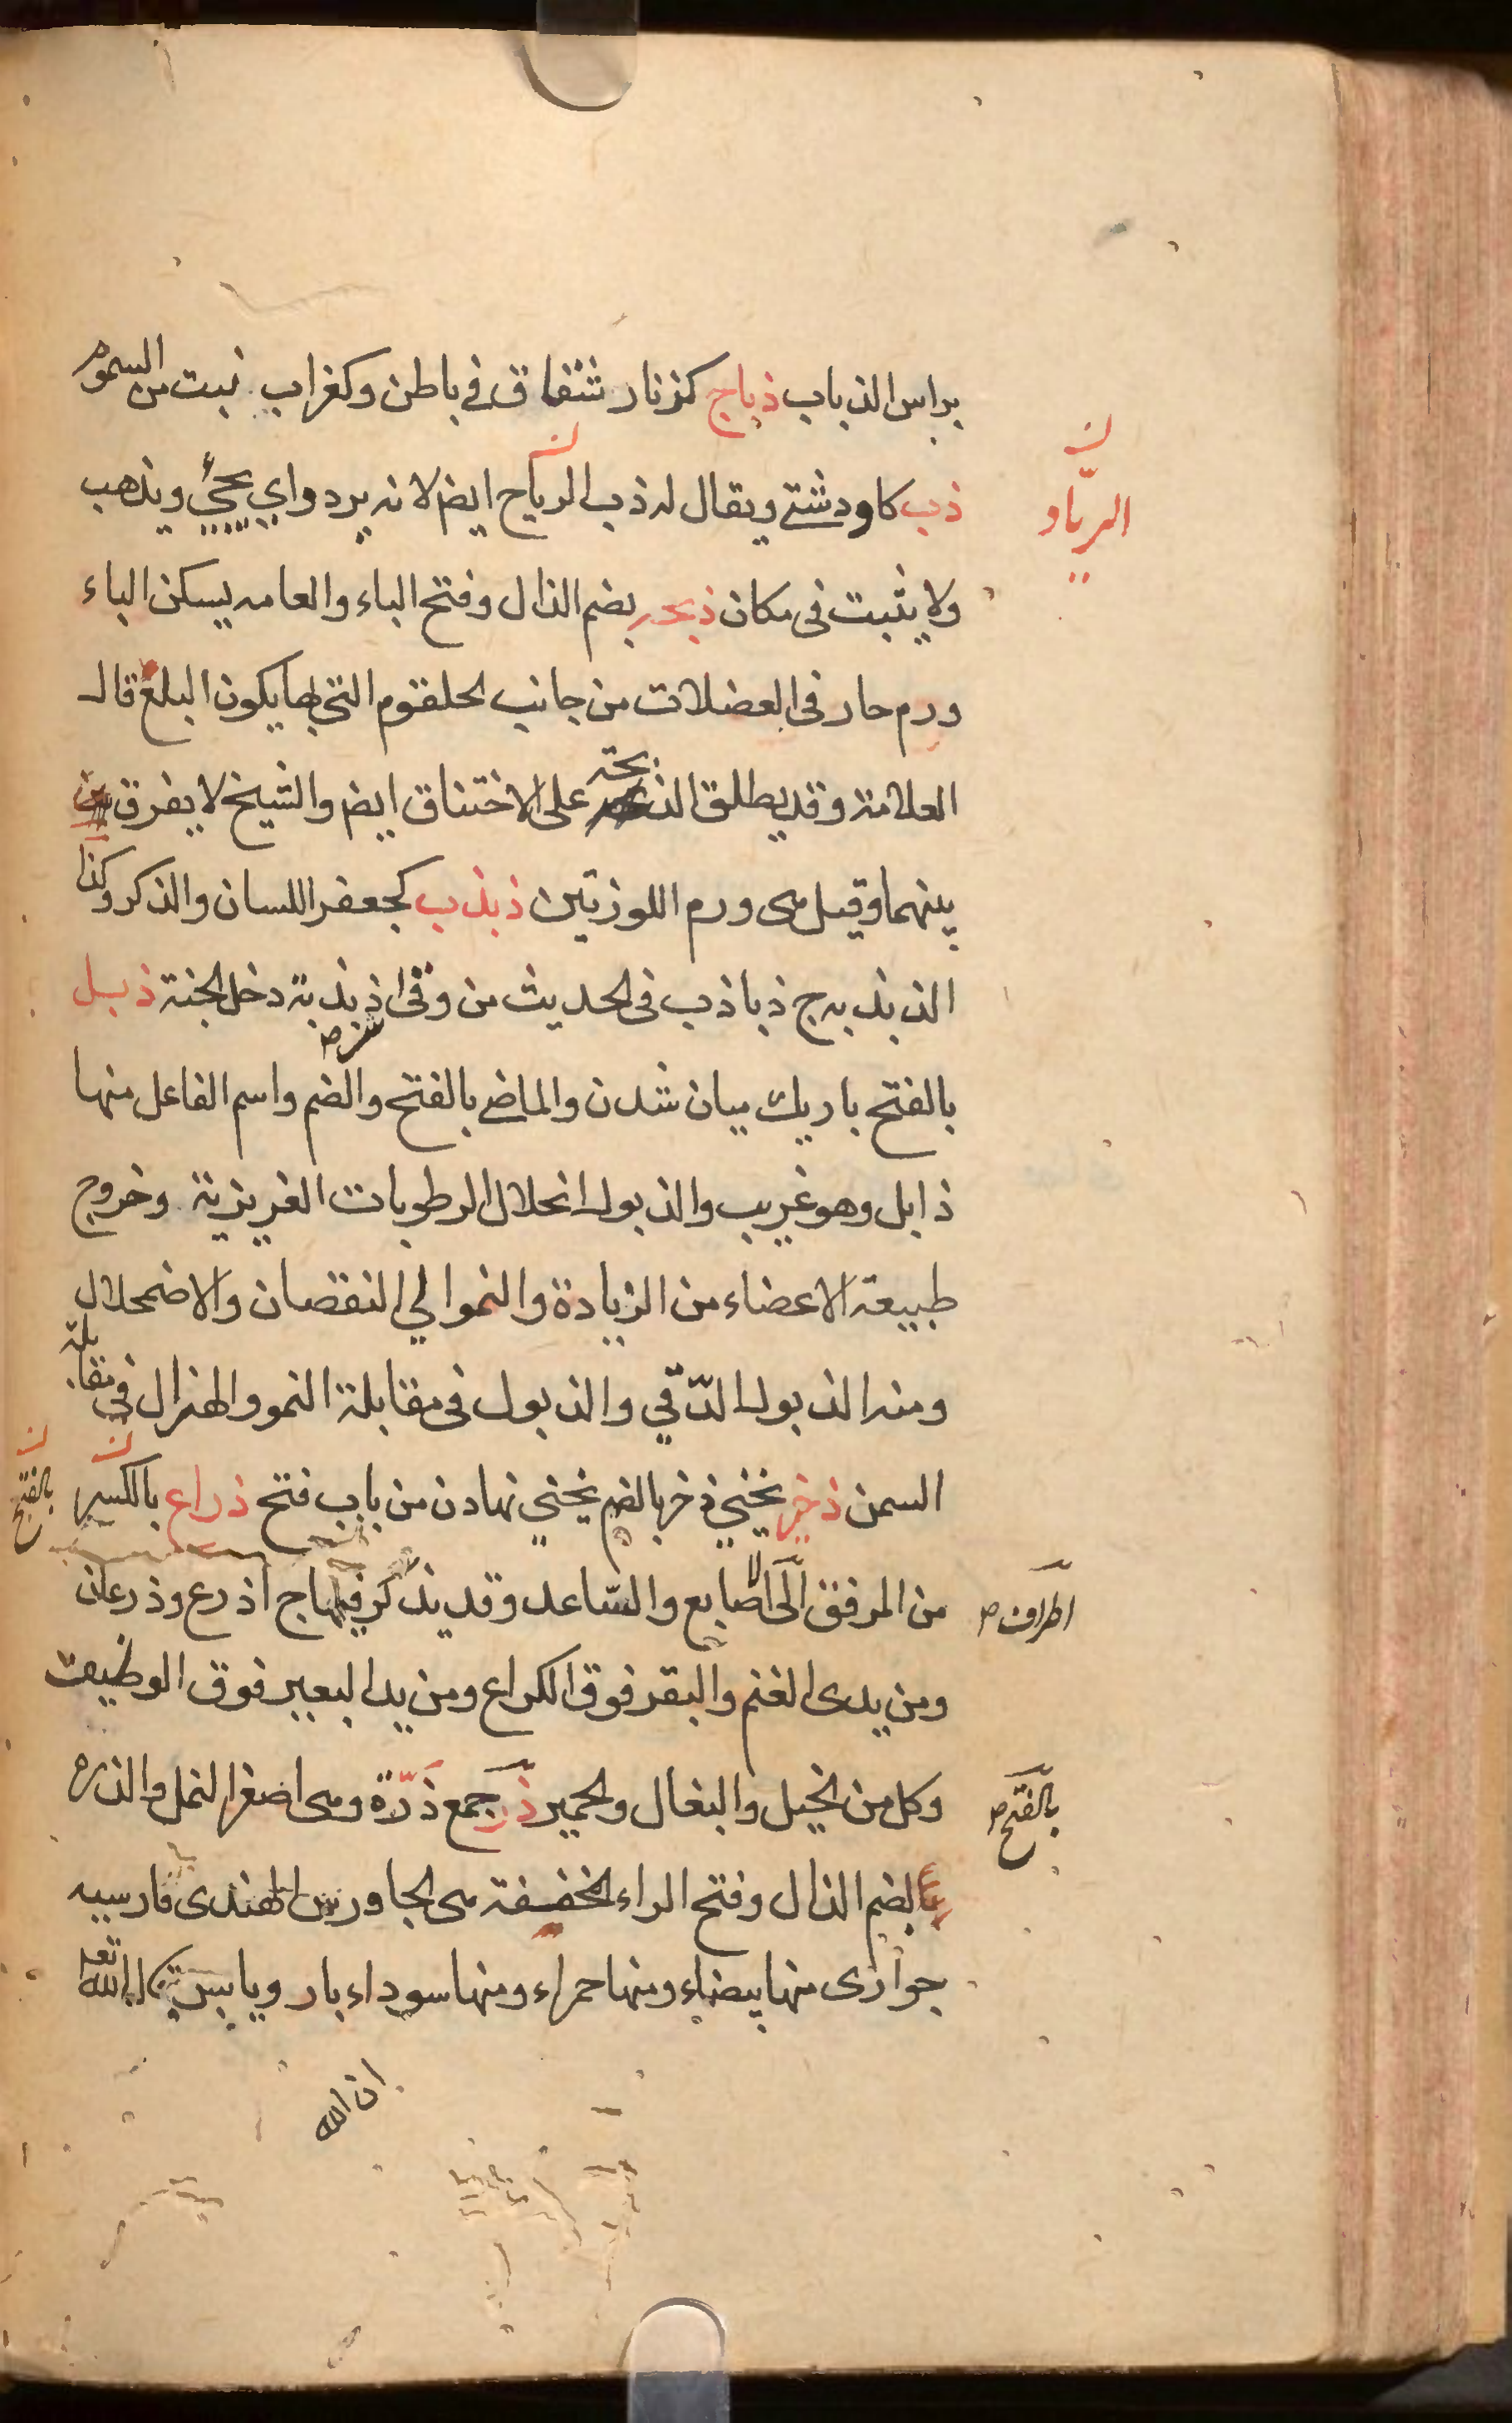 براس الذباب ذباح كزنار شقاق في باطن وكغراب نبت من السموم
ذب كاو دشتى ويقال له ذب الرياح ايضا لانه يرد واي يجيء ويذهب
الرياد
ولا يثبت فى مكان ذبحه بضم الذال وفتح الباء والعامه يسكن الباء
ورم حار فى العضلات من جانب الحلقوم التى بها يكون البلع قال
العلامة وقد يطلق الذبحة على الاختناق ايضا والشيخ لا يفرق
بينهما وقيل هى ورم اللوزتين ذبذب كجعفر اللسان والذكر وكذا
الذبذبه ج ذباذب فى الحديث من وقى شر ذبذبة دخل الجنة ذبل
بالفتح باريك ميان شدن والماضى بالفتح والضم واسم الفاعل منها
ذابل وهو غريب والذبول انحلال الرطوبات الغريزية وخروج
طبيعة الاعضاء من الزيادة والنمو الي النقصان والاضمحلال
ومنه الذبول الدّقي والذبول فى مقابلة النمو والهزال فى مقابلة
السمن ذخر يخنى ذخر بالضم يخني نهادن من باب فتح ذراع بالكسر بالفتح
من المرفق الى اطراف الاصابع والسّاعد وقد يذكر فيهما ج اذرع وذرعان
ومن يدى الغنم والبقر فوق الكراع ومن يد البعير فوق الوظيف
وكل من الخيل والبغال والحمير ذر بالفتح جمع ذَرّة وهى اصغر النمل والذره
بضم الذال وفتح الراء الخفيفة هى الجاورس الهندى فارسيه
جوارى منها بيضاء ومنها حمراء ومنها سوداء بارد يابس الله
ان الله